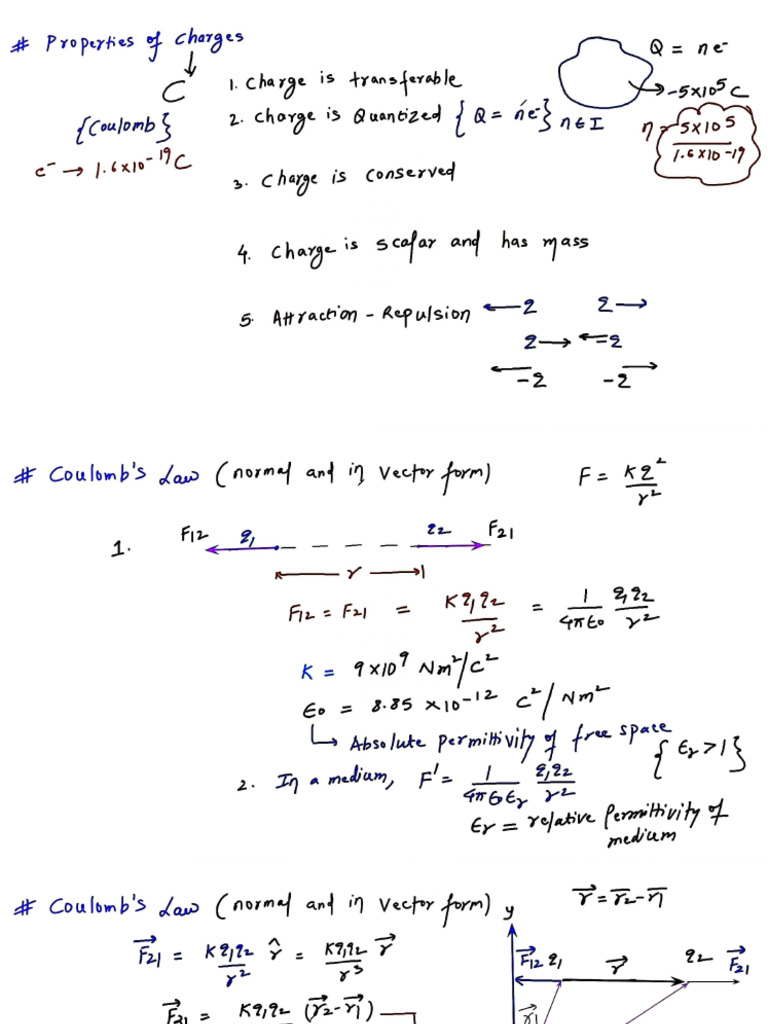 # Properties of Charges
C
{Coulomb}
e⁻ → 1.6×10⁻¹⁹ C
1. Charge is transferable
2. Charge is Quantized { Q = ne⁻ } n ∈ I
3. Charge is conserved
4. Charge is scalar and has mass
5. Attraction - Repulsion
← q q →
q → ← -q
← -q -q →
Q = ne⁻
→ -5×10⁵ C
n = 5×10⁵ / 1.6×10⁻¹⁹
# Coulomb's Law (normal and in vector form) F = Kq² / r²
1. F12 q1 q2 F21
r
F12 = F21 = Kq1q2 / r² = 1 / 4πϵ0 q1q2 / r²
K = 9×10⁹ Nm²/C²
ϵ0 = 8.85 ×10⁻¹² C²/Nm²
↳ Absolute permittivity of free space
{ ϵr > 1 }
2. In a medium, F' = 1 / 4πϵ0ϵr q1q2 / r²
ϵr = relative permittivity of
medium
# Coulomb's Law (normal and in vector form)
r⃗ = r⃗2 - r⃗1
F⃗21 = Kq1q2 / r² r̂ = Kq1q2 / r³ r⃗
F⃗21 = Kq1q2 (r⃗2 - r⃗1)
y
F⃗12 q1 r⃗ q2 F⃗21
r⃗1